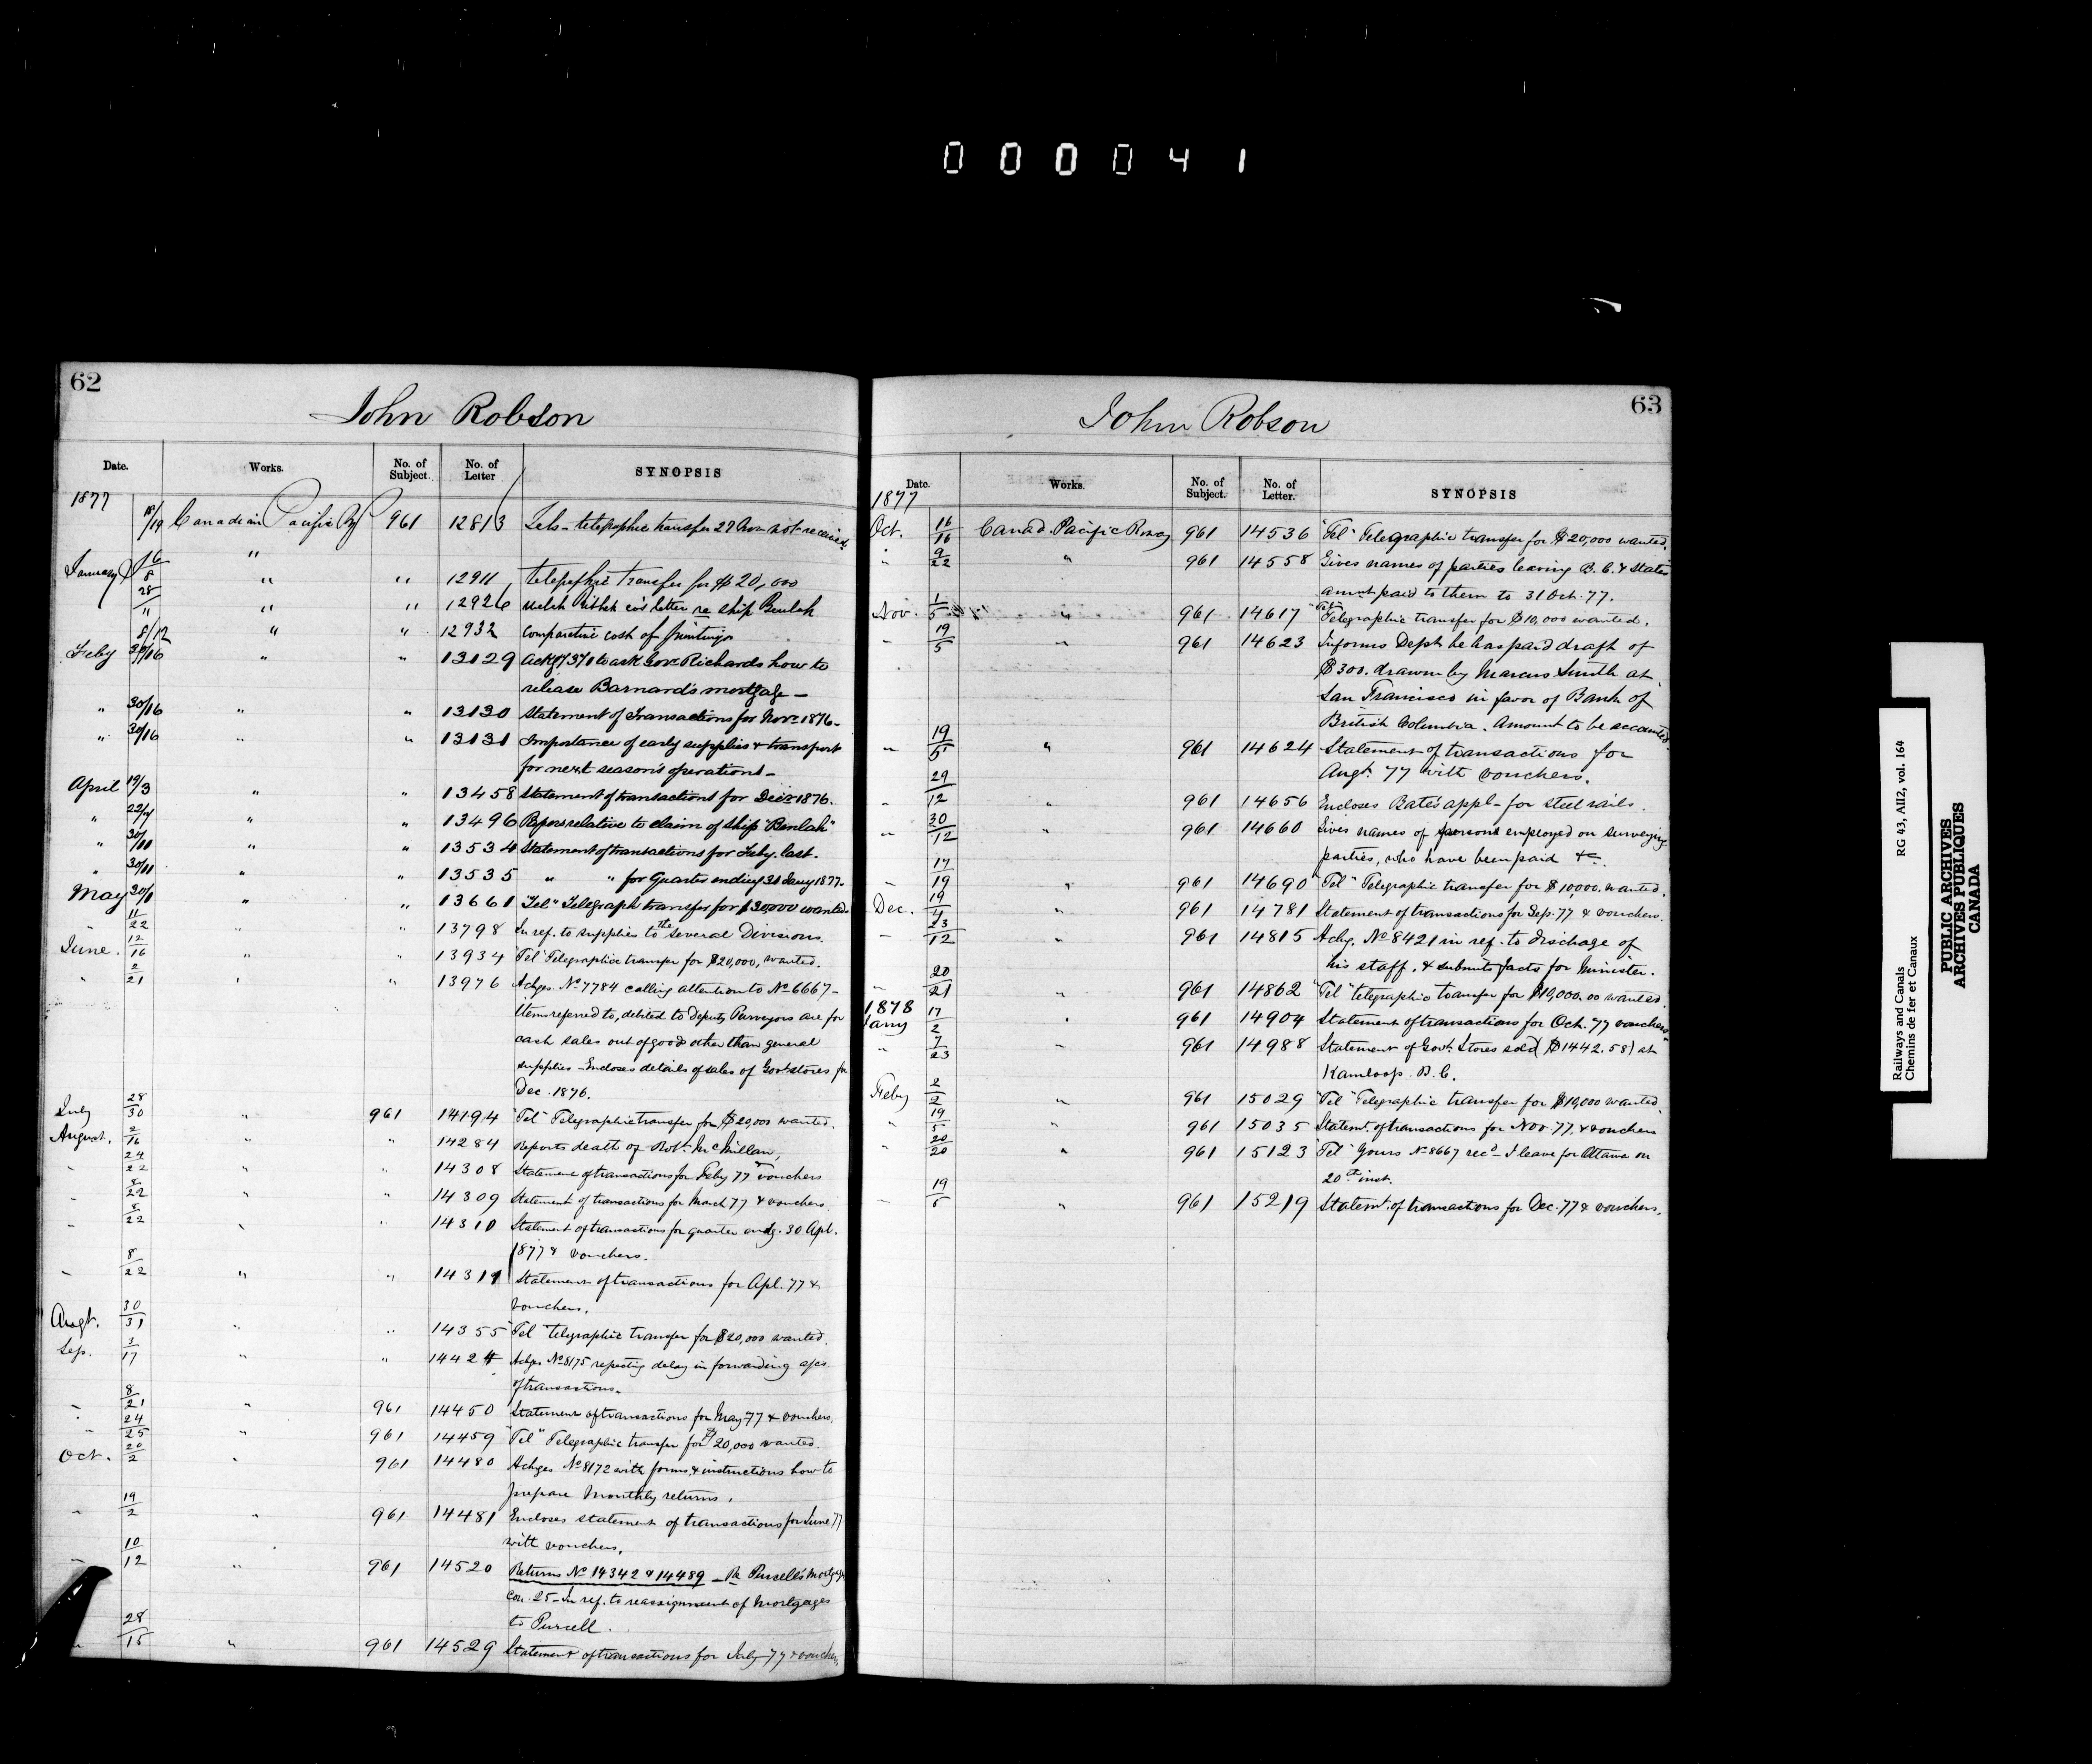 000041
62
John Robson
Date. Works. No. of Subject. No. of Letter SYNOPSIS
1877
18/19 Canadian Pacific Ry 961 12813 Tels - telegraphic transfer 27 Nov not received
January 16/8 " " 12911 telegraphic transfer for $20,000
28/11 " " 12926 Welch Rithet co's letter re ship Beulah
8/12 " " 12932 comparative cost of printing
Feby 30/16 " " 13129 Ackg 7371 to ask Govr Richards how to
release Barnard's mortgage -
" 30/16 " " 13130 Statement of Transactions for Novr 1876.
" 30/16 " " 13131 Importance of early supplies & transport
for next season's operations -
April 19/3 " " 13458 Statement of transactions for Decr 1876.
" 22/4 " " 13496 Papers relative to claim of ship "Beulah"
" 30/11 " " 13534 Statement of transactions for Feby. last.
" 30/11 " " 13535 " " for Quarter ending 31 Jany 1877.
May 30/1 " " 13661 "Tel" Telegraph transfer for $30,000 wanted.
11/22 " " 13798 In ref. to supplies to the several Divisions.
June. 12/16 " " 13934 "Tel" Telegraphic transfer for $20,000, wanted.
" 2/21 " " 13976 Ackges. No 7784 calling attention to No 6667 -
Items referred to, debited to Deputy Purveyors are for
cash sales out of goods other than general
supplies - Encloses details of sales of Govt stores for
Dec. 1876.
July 28/30 " 961 14194 "Tel" Telegraphic transfer for $20,000 wanted.
August. 2/16 " " 14284 Reports death of Robt. McMillan,
" 24/22 " " 14308 Statement of transactions for Feby 77 & vouchers
8/22 " " 14309 Statement of transactions for March 77 & vouchers.
" 8/22 " " 14310 Statement of transactions for quarter endg. 30 Apl.
1877 & vouchers.
" 8/22 " " 14311 Statement of transactions for Apl. 77 &
vouchers.
Augt. 30/31 " " 14355 "Tel" telegraphic transfer for $20,000 wanted.
Sep. 3/17 " " 14424 Ackges No 8175 respecting delay in forwarding a/cs
of transactions.
" 8/21 " 961 14450 Statement of transactions for May 77 & vouchers.
" 24/25 " 961 14459 "Tel" Telegraphic transfer for $20,000 wanted.
Oct. 20/2 " 961 14480 Ackges No 8172 with forms & instructions how to
prepare monthly returns.
" 19/2 " 961 14481 Encloses statement of transactions for June 77
with vouchers.
" 10/12 " 961 14520 Returns No 14342 & 14489 - Re Purcell's Mortgage
con. 25 - In ref. to reassignment of mortgages
to Purcell.
" 28/15 " 961 14529 Statement of transactions for July 77 & vouchers.
63
John Robson
Date. Works. No. of Subject. No. of Letter. SYNOPSIS
1877
Oct. 16/16 Canad. Pacific Rway 961 14536 "Tel" Telegraphic transfer for $20,000 wanted.
" 9/22 " 961 14558 Gives names of parties leaving B.C. & States
amnt paid to them to 31 Oct. 77.
Nov. 1/5 " 961 14617 "Tel" Telegraphic transfer for $10,000 wanted.
" 19/5 " 961 14623 Informs Dept. he has paid draft of
$300. drawn by Marcus Smith at
San Francisco in favor of Bank of
British Columbia. Amount to be accounted.
" 19/5 " 961 14624 Statement of transactions for
Augt. 77 with vouchers.
" 29/12 " 961 14656 Encloses Bate's appl- for steel rails.
" 30/12 " 961 14660 Gives names of persons employed on surveying
parties, who have been paid &c.
" 17/19 " 961 14690 "Tel" Telegraphic transfer for $10,000. wanted.
Dec. 19/4 " 961 14781 Statement of transactions for Sep. 77 & vouchers.
" 23/12 " 961 14815 Ackg. No 8421 in ref. to discharge of
his staff, & submits facts for Minister.
" 20/21 " 961 14862 "Tel" telegraphic transfer for $10,000.00 wanted.
1878
Jany 17/2 " 961 14904 Statement of transactions for Oct. 77 vouchers
" 7/23 " 961 14988 Statement of Govt. Stores sold ($1442.58) at
Kamloops. B.C.
Feby 2/2 " 961 15029 "Tel" Telegraphic transfer for $10,000 wanted.
" 19/5 961 15035 Statemt. of transactions for Nov. 77. & vouchers
" 20/20 " 961 15123 "Tel" Yours No 8667 recd - I leave for Ottawa on
20th inst.
" 19/5 " 961 15219 Statemt. of transactions for Dec. 77 & vouchers.
Railways and Canals RG 43, AII2, vol. 164
Chemins de fer et Canaux
PUBLIC ARCHIVES
ARCHIVES PUBLIQUES
CANADA